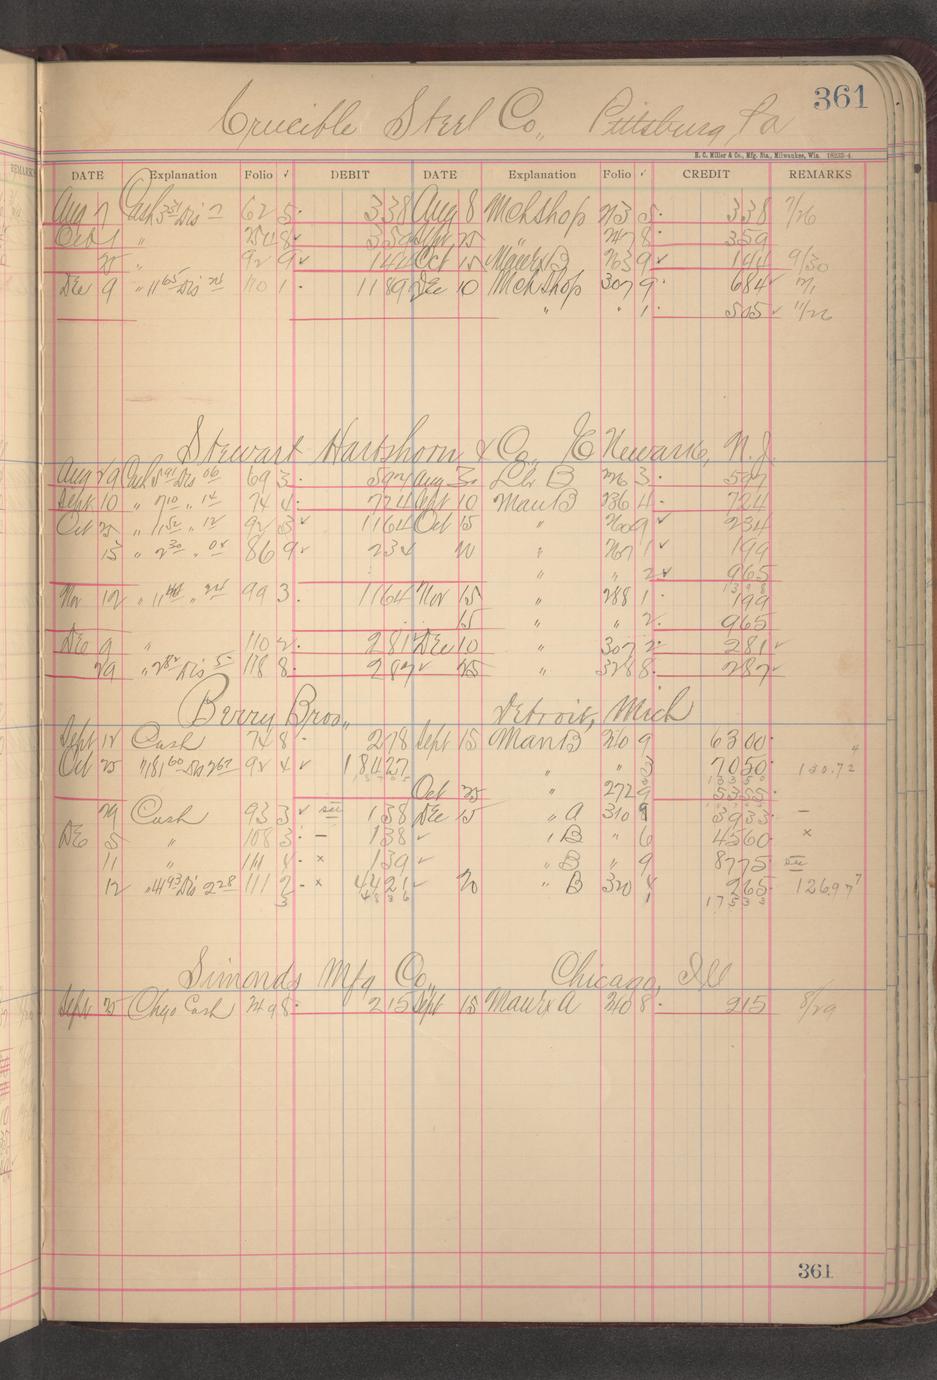 361
Crucible Steel Co., Pittsburg, Pa
H. C. Miller & Co., Mfg. Sta., Milwaukee, Wis. 18235-4
DATE Explanation Folio ✓ DEBIT DATE Explanation Folio ✓ CREDIT REMARKS
Aug 7 Cash 3 31 Dis 7 62 5 338 Aug 8 Mch Shop 213 5 338 7/26
Oct 1 " 254 8 ✓ 359 Sept 25 247 8 359
25 " 92 9 ✓ 144 Oct 15 263 9 ✓ 144 9/30
Dec 9 " 11 65 Dis 24 110 1 1189 Dec 10 Mch Shop 307 9 684 ✓
" " 1 505 ✓ 11/26
Stewart Hartshorn & Co., E Newark, N.J.
Aug 29 Cash 5 91 Dis 06 69 3 597 Aug 3 B 3 597
Sept 10 " 7 10 " 14 74 4 724 Sept 10 Man B 236 4 724
Oct 25 " 11 52 " 12 92 3 ✓ 1164 Oct 15 " 260 9 ✓ 234
15 " 2 30 " 04 86 9 ✓ 234 20 " 267 1 ✓ 199
" " 2 ✓ 965
Nov 12 " 11 40 " 24 99 3 1164 Nov 15 " 288 1 199
15 " " 2 965
Dec 9 " 110 2 281 Dec 10 " 307 2 281 ✓
29 " 2 82 Dis 5 118 8 287 ✓ 25 " 328 8 287 ✓
Berry Bros., Detroit, Mich
Sept 12 Cash 74 8 278 Sept 15 Man B 240 9 6300
Oct 25 " 181 60 Dis 2 67 92 4 ✓ 18427 " " 3 7050 130.72
Oct 25 " 272 9 5355
29 Cash 93 3 ✓ 138 Dec 15 " A 310 9 3933 -
Dec 5 " 108 3 - 138 ✓ " B " 6 4560 ×
11 " 111 4 - × 139 ✓ " B " 9 8775
12 " 41 93 Dis 2 28 111 2 - × 4421 ✓ 20 " B 320 4 265 126.97
3 1 17533
Simonds Mfg Co., Chicago, Ill
Sept 25 Chgo Cash 249 8 215 Sept 15 A 240 8 215 8/29
361